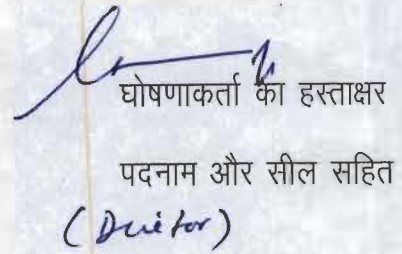 घोषणाकर्ता का हस्ताक्षर
पदनाम और सील सहित
(Director)